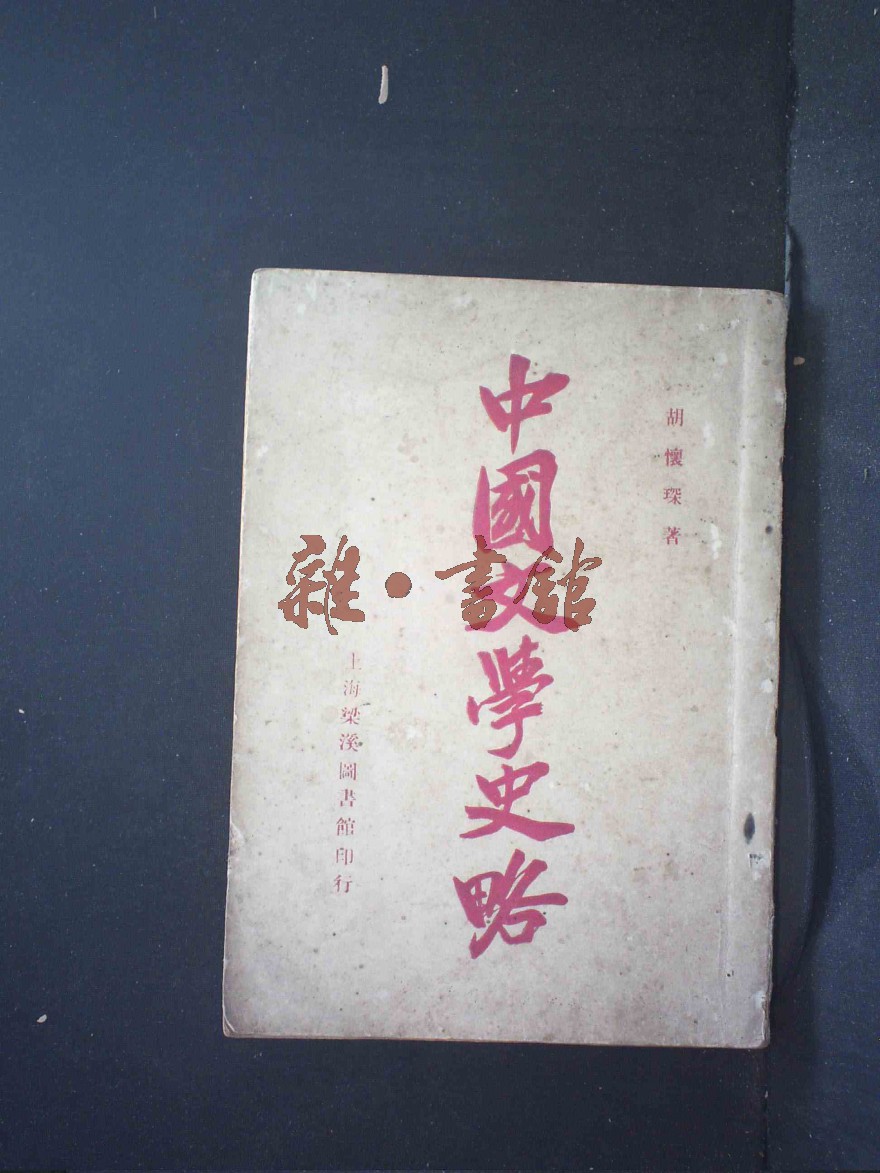 胡懷琛著
中國文學史略
上海梁溪圖書館印行
雜·書館